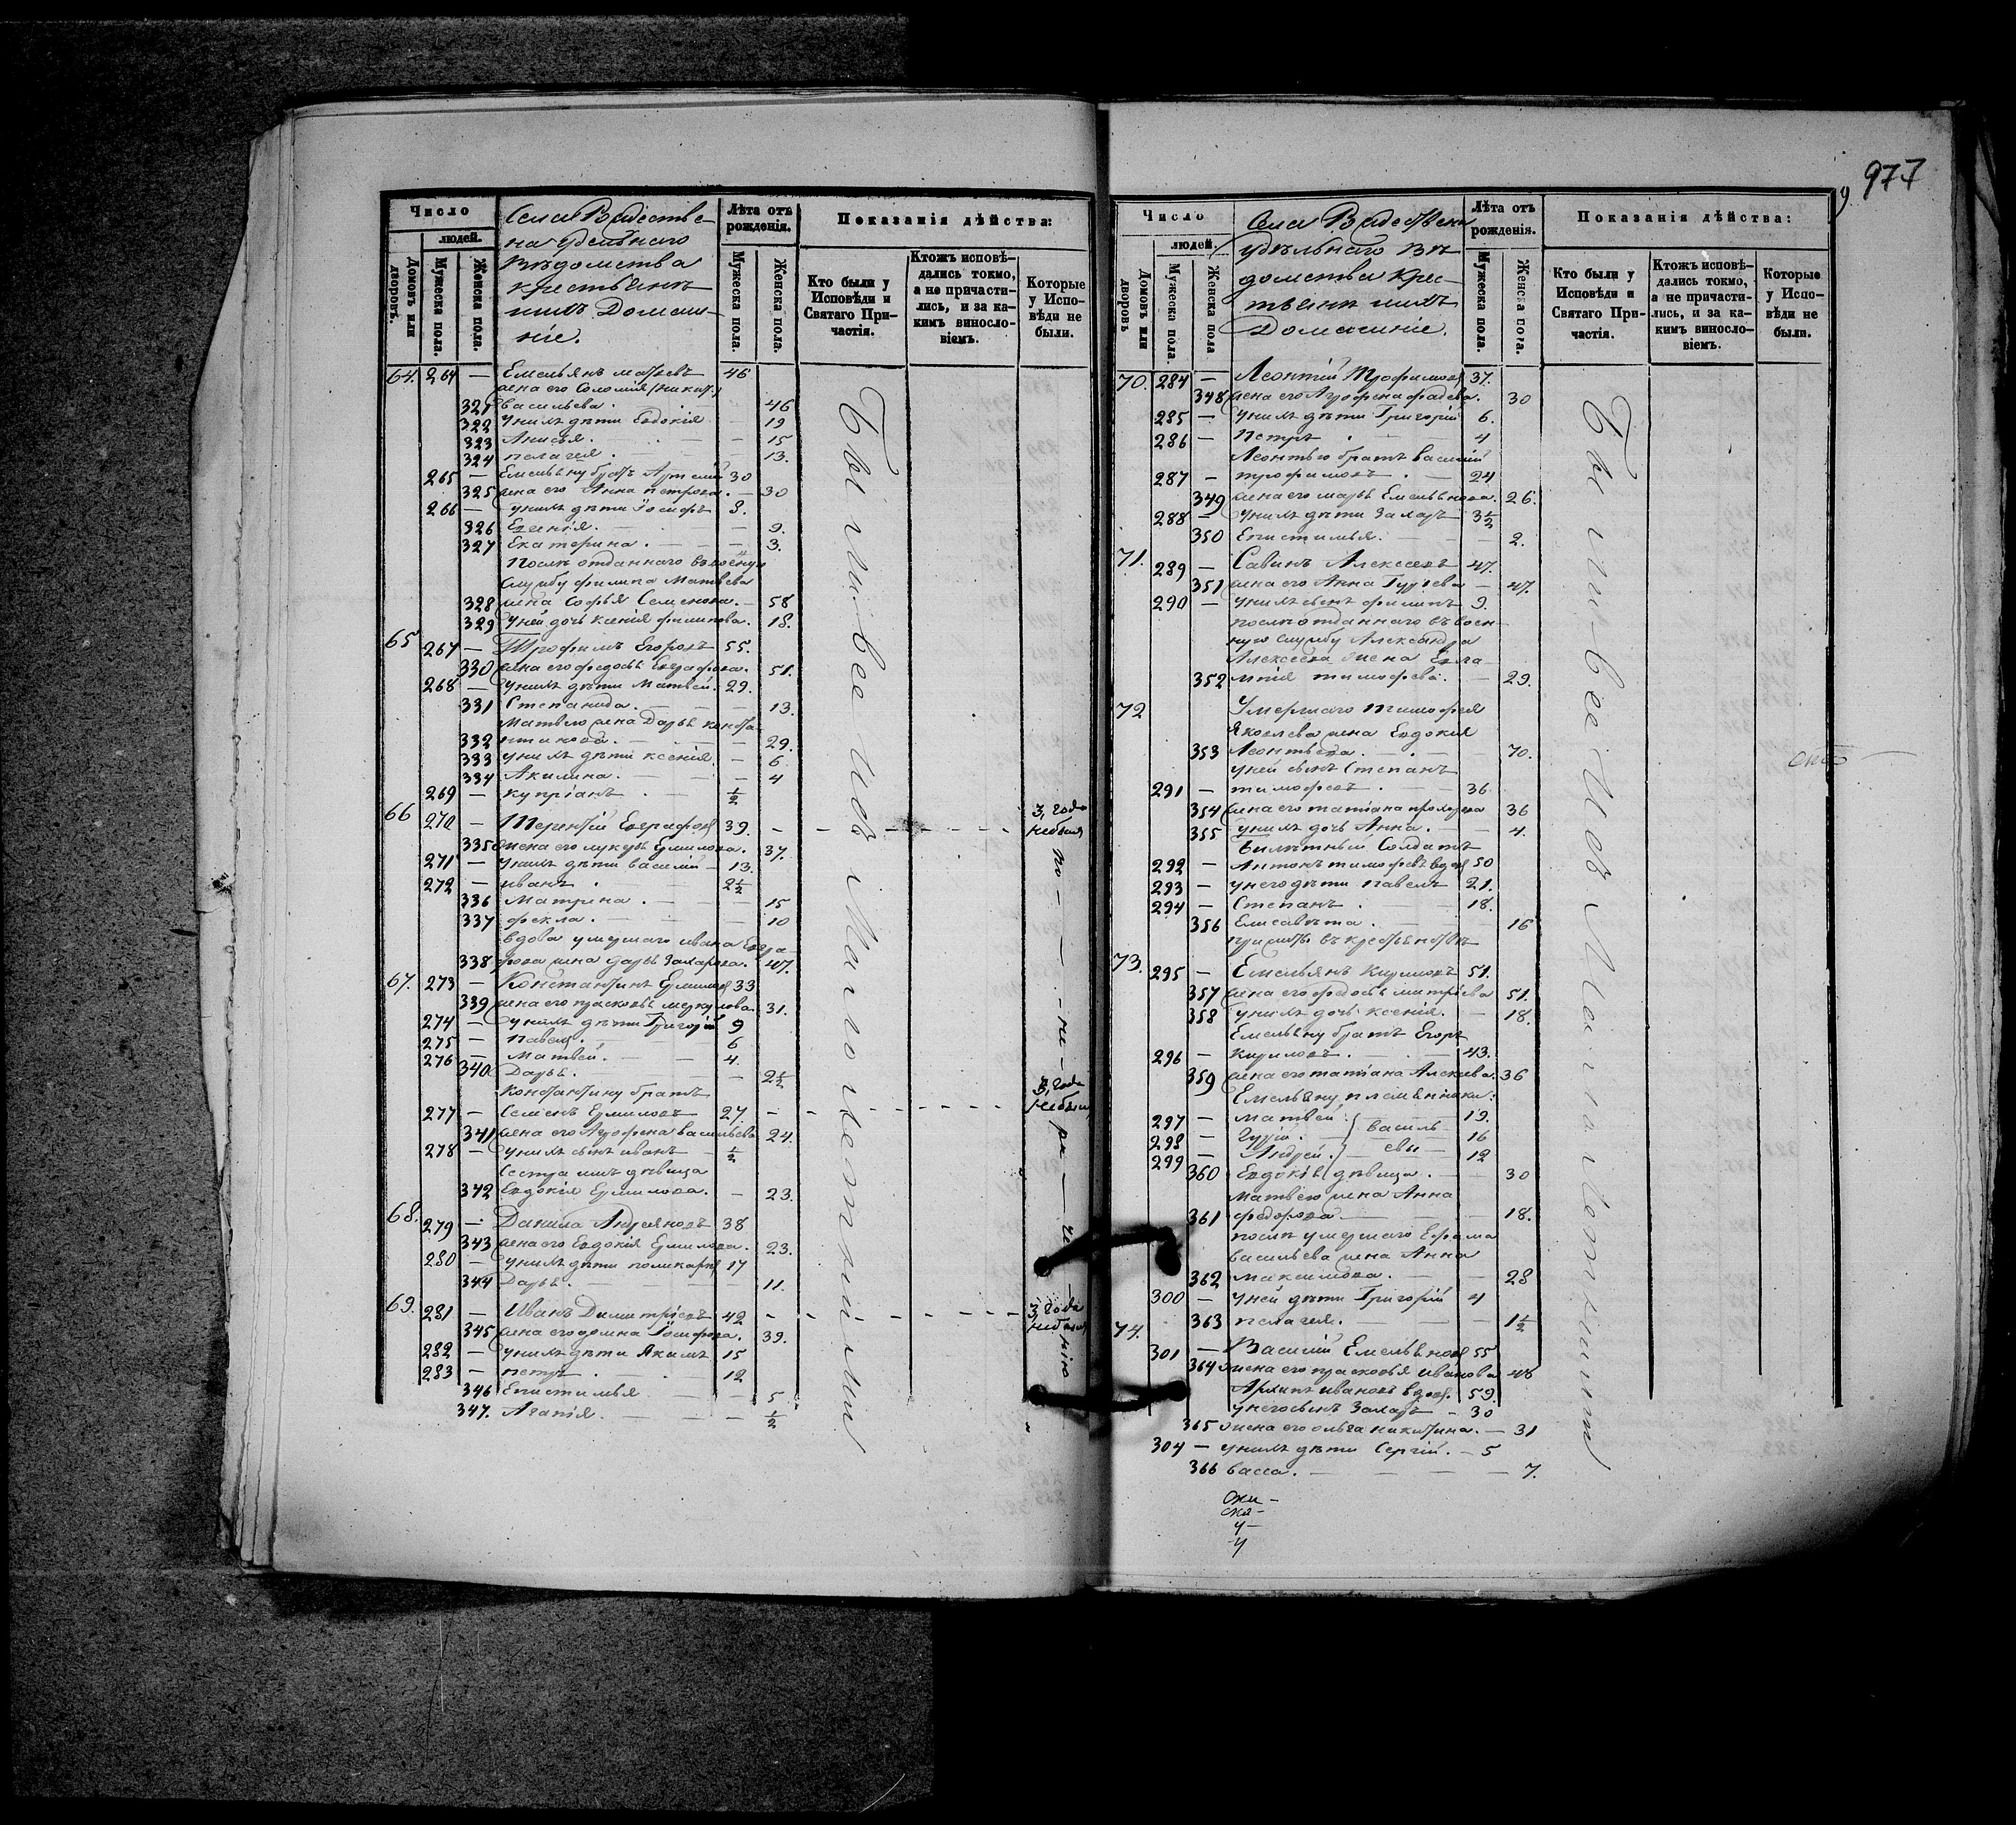 977
9.
Число
людей.
Домовъ или дворовъ.
Мужеска пола.
Женска пола.
Села
на удельнаго
Вѣдомства
крестьянъ
ихъ Домаш-
ніе.
Лѣта отъ рожденія.
Мужеска пола.
Женска пола.
Показанія дѣйства:
Кто были у Исповѣди и Святаго При-частія.
Ктожъ исповѣ-дались токмо, а не причасти-лись, и за ка-кимъ винословіемъ.
Которые у Испо-вѣди не были.
64. 264 — Емельянъ 46
жена его Соломия
321 васильева. 46
322 у нихъ дѣти Евдокия 19
323 Анисья. 15
324 пелагея. 13.
265 — Емельяну братъ Артемій 30
325 жена его Анна петрова. 30
266 — у нихъ дѣти Іосифъ 8.
326 Евгенія. 9.
327 Екатерина. 3.
Послѣ отданнаго въ военну
Службу филипа Матвѣева
328 жена Софья Семенова. 58
329 у ней дочь ксенія филипова. 18.
65 267 — Трофимъ Егоровъ 55.
330 жена его федосья 51.
268 — у нихъ дѣти Матвей. 29.
331 Степанида. 13.
Матвею жена Дарья конста-
332 нтинова. 29.
333 у нихъ дѣти ксенія 6
334 Акилина. 4
269 — купріанъ. ½
66 270 — Терентій 39. 3, года небылъ
335 жена его лукерья Ермилова. 37.
271 — у нихъ дѣти василій 13.
272 — иванъ 2½
336 Матрена. 15
337 фекла. 10
вдова умершаго ивана
338 жена дарья Захарова. 47.
67. 273 — Константинъ Ермиловъ 33
339 жена его прасковья меркулова. 31.
274 — у нихъ дѣти Григорій 9
275 — павелъ. 6
276 — Матвей. 4.
340 Дарья. 2½
Константину братъ
277 — Семенъ Ермиловъ 27. 3, года небылъ
341 жена его Агрофена васильева 24.
278 — у нихъ сынъ иванъ ½
Сестра ихъ дѣвица
342 Евдокія Ермилова. 23.
68. 279 — Данила Андреяновъ 38
343 жена его Евдокія Ермилова. 23.
280 — у нихъ дѣти поликарпъ 17
344 Дарья. 11.
69. 281 — Иванъ Димитріевъ 42 3, года небылъ
345 жена его домна Іосифова. 39.
282 — у нихъ дѣти Якимъ 15
283 — петръ 12
346 Епистимья 5
347. Агапія. ½
Были въ и
Число
людей.
Домовъ или дворовъ
Мужеска пола.
Женска пола
Села
удѣльнаго Вѣ
домства Крес-
тьянъ ихъ
Домашніе.
Лѣта отъ рожденія.
Мужеска пола.
Женска пола.
Показанія дѣйства:
Кто были у Исповѣди и Святаго При-частія.
Ктожъ исповѣ-дались токмо, а не причасти-лись, и за ка-кимъ винословіемъ.
Которые у Испо-вѣди не были.
70. 284 — Леонтій Трофимовъ 37.
348 жена его Агрофена фадеева. 30
285 — у нихъ дѣти Григорій 6.
286 — Петръ 4
Леонтью братъ василій
287 — трофимовъ. 24
349 жена его марья Емельянова. 26.
288 — у нихъ дѣти Захаръ 3½
350 Епистимья. 2.
71. 289 — Савинъ Алексеевъ 47.
351 жена его Анна Гурʼева 47.
290 — у нихъ сынъ филипъ 9.
послѣ отданнаго въ воен-
ную службу Александра
Алексеева жена Евла-
352 мпія тимофева. 29.
72 Умершаго тимофея
Яковлева жена Евдокия
353 Леонтьева. 70.
у ней сынъ Степанъ
291 — тимофевъ. 36
354 жена его татіана прохорова 36
355 у нихъ дочь Анна. 4.
Билетный Солдатъ
292 — Антонъ тимофевъ вдовъ 50
293 — у него дѣти павелъ 21.
294 — Степанъ 18.
356 Елисавѣта. 16
73. 295 — Емельянъ Кириловъ 51.
357 жена его федосья митріева 51.
358 у нихъ дочь ксенія. 18.
Емельяну братъ Егоръ
296 — кириловъ. 43.
359 жена его татіана Алексеева. 36
Емельяну племянники:
297 — матвей 19.
298 — Гурій. василь- 16
299 — Андрей. евы 12
360 Евдокія дѣвица. 30
Матвею жена Анна
361 федорова. 18.
послѣ умершаго Ефрема
васильева жена Анна
362 максимова. 28
300 — у ней дѣти Григорій 4
363 пелагея. 1½
74. 301 — Василій Емельяновъ 55
364 жена его прасковья иванова 48
Архипъ ивановъ вдовъ. 59.
у него сынъ Захаръ 30
365 жена его ольга никитина. 31
304 — у нихъ дѣти Сергій. 5
366 васса. 7.